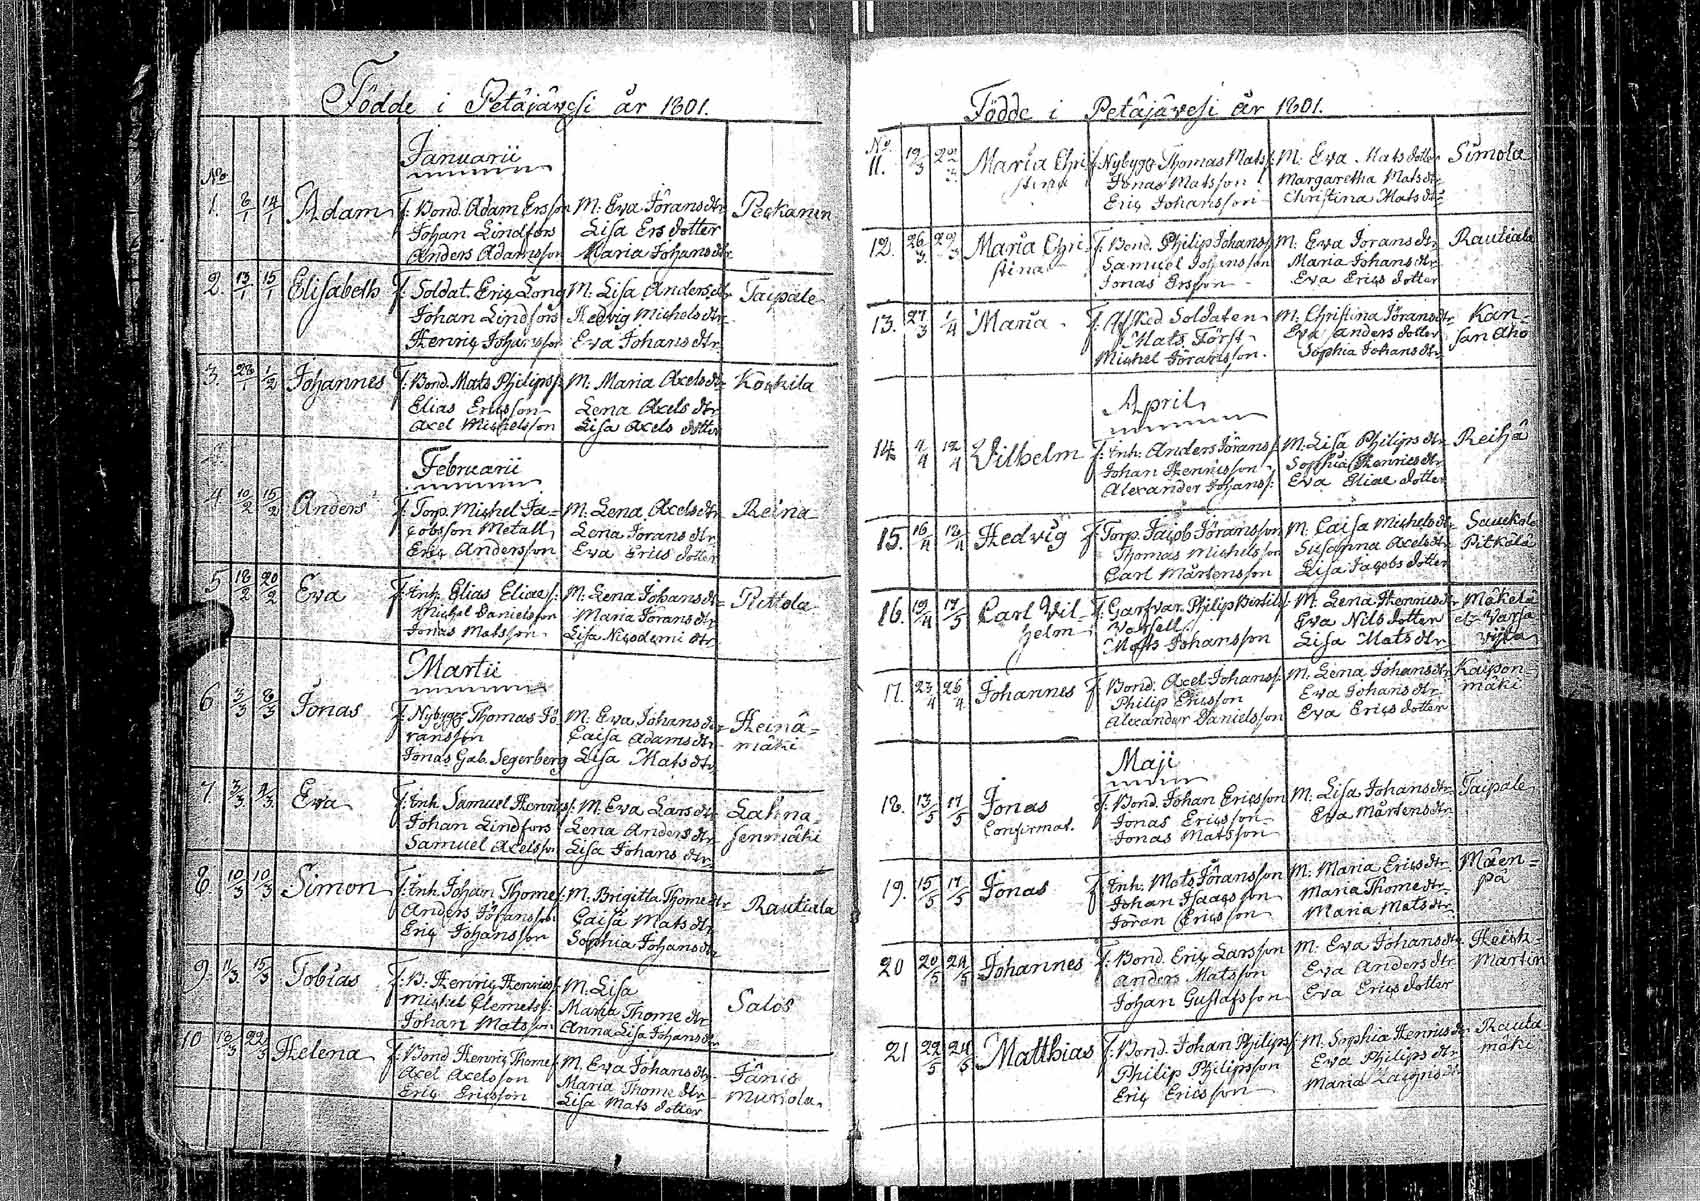 Födde i Petäjävesi år 1801.
Januarii
No
1. 8/1 14/1 Adam f: Bond. Adam Ersson M: Eva Jörans dtr Peckanen
Johan Lindfors Lisa Ers dotter
Anders Adamsson Maria Johans dtr
2. 13/1 15/1 Elisabeth f: Soldat. Eric Long M: Lisa Anders dtr Taipale
Johan Lindfors Hedvig Michels dtr
Henric Johansson Eva Johans dtr
3. 28/1 1/2 Johannes f: Bond. Mats Philipss: M: Maria Axels dtr Koskila
Elias Ericsson Lena Axels dtr
Axel Michelsson Lisa Axels dotter
Februarii
4. 10/2 15/2 Anders f: Torp. Michel Ja= M: Lena Axels dtr Reina
cobsson Metall Lena Jörans dtr
Eric Andersson Eva Erics dotter
5 18/2 20/2 Eva f: Inh. Elias Eliaes: M: Lena Johans dtr Pittola
Michel Danielsson Maria Jörans dtr
Jonas Matsson Lisa Nicodemi dtr
Martii
6 3/3 8/3 Jonas f: Nybygg. Thomas Jö M: Eva Johans dtr Heinä=
ransson Caisa Adams dtr mäki
Jonas Gab. Segerberg Lisa Mats dtr
7. 3/3 4/3 Eva f: Inh. Samuel Henrics: M. Eva Lars dtr Lahna=
Johan Lindfors Lena Anders dtr senmäki
Samuel Axelsson Lisa Johans dtr
8. 10/3 10/3 Simon f: Inh. Johan Thomes: M. Brigitta Thome dtr Rautiala
Anders Johansson Caisa Mats dtr
Eric Johansson Sophia Johans dtr
9. 11/3 15/3 Tobias f: B. Henric Henrics: M. Lisa Salos
Michel Clemets: Maria Thome dtr
Johan Matsson Anna Lisa Johans dtr
10 18/3 22/3 Helena f: Bond Henric Thomes: M. Eva Johans dtr Jänis
Axel Axelsson Maria Thome dtr muriola
Eric Ericsson Lisa Mats dotter
Födde i Petäjävesi år 1801.
No
11. 19/3 20/3 Maria Chri f: Nybygg. Thomas Mats: M. Eva Mats dotter Simola
stina Jonas Matsson Margaretha Mats dtr
Eric Johansson Christina Mats dtr
12. 26/3 29/3 Maria Chri f: Bond. Philip Johans: M: Eva Jörans dtr Rautiala
stina Samuel Johansson Maria Johans dtr
Jonas Ersson Eva Erics dotter
13. 27/3 1/4 Maria f: Afsked Soldaten M: Christina Jörans dtr Kan=
Mats Först Eva Anders dotter san Aho
Michel Jöransson Sophia Johans dtr
April
14. 4/4 12/4 Vilhelm f: Inh. Anders Jörans: M: Lisa Philips dtr Reihä
Johan Henricsson Sophia Henrics dtr
Alexander Johans: Eva Eliae dotter
15. 16/4 18/4 Hedvig f: Torp. Jacob Jöransson M. Caisa Michels dtr Sauckola
Thomas Michelsson Susanna Axels dtr Pitkälä
Carl Mårtensson Lisa Jacobs dotter
16. 19/4 17/5 Carl Vil= f: Garfvar. Philip Bertils: M: Lena Henrics dtr Mäkelä
helm Varsell Eva Nils dotter
Mats Johansson Lisa Mats dtr
17. 23/4 26/4 Johannes f: Bond. Axel Johanss: M: Lena Johans dtr Kaipon=
Philip Ericsson Eva Johans dtr mäki
Alexander Danielsson Eva Erics dotter
Maji
18. 13/5 17/5 Jonas f: Bond. Johan Ericsson M: Lisa Johans dtr Taipale
Confirmat. Jonas Ericsson Eva Mårtens dtr
Jonas Matsson
19. 15/5 17/5 Jonas f: Inh. Mats Jöransson M: Maria Erics dtr Mäen=
Johan Isaacsson Maria Thome dtr pä
Jöran Ericsson Maria Mats dtr
20 20/5 24/5 Johannes f: Bond. Eric Larsson M: Eva Johans dtr Heick=
Anders Matsson Eva Anders dtr Martin
Johan Gustafsson Eva Erics dotter
21 22/5 24/5 Matthias f: Bond. Johan Philips: M. Sophia Henrics dtr Rauta
Philip Philipsson Eva Philips dtr mäki
Eric Ericsson Maria dtr